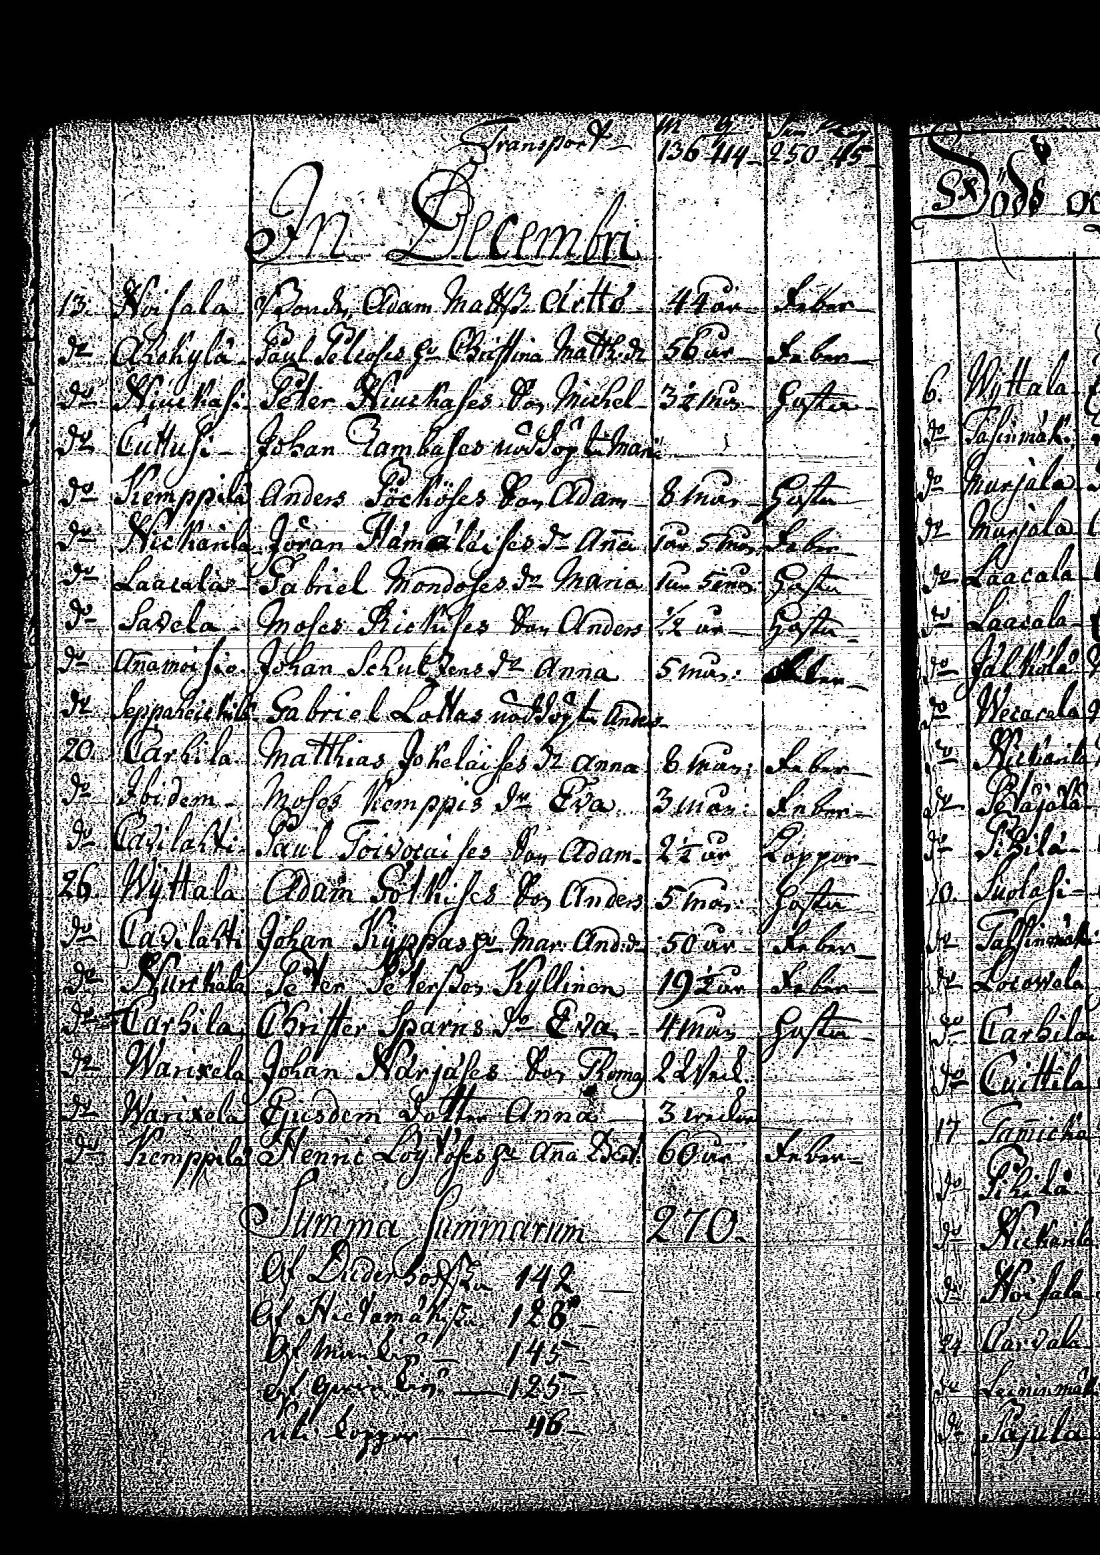 Transport
136 114 250 45
In Decembri
13. Noisala Bonden Adam Matts: Arttö 44 år Feber
do Ahokylä Paul Peltoses hu Christina Matth: dr 56 år Feber
do Niuckasi Peter Niuckases Son Michel 3½ mån Hosta
do Cuttusi Johan nöddöpt Mari
do Kemppilä Anders Pöcköses Son Adam 8 mån Hosta
do Nickarila Jöran Hämäläises dr Anna 1 år 5 mån Feber
do Laacala Gabriel Mondoses dr Maria 1 år 5 mån Hosta
do Savela Moses Rickises Son Anders ½ år Hosta
do Anamoisio Johan Schultzens dr Anna 5 mån:
do Gabriel Lottas nöddöpt Anders
20. Carhila Matthias Jokelaises dr Anna 8 mån: Feber
do Ibidem Moses Kemppis dr Eva 3 mån: Feber
do Cavilahti Paul Toivocaises Son Adam 2½ år Koppor
26. Wyttala Adam Sotkises Son Anders 5 mån Hosta
do Cavilahti Johan Kyppas hu Mar: And: dr 50 år Feber
do Nurckala Peter Peterson Kyllinen 19½ år Feber
do Carhila Christer Sparns dr Eva 4 mån Hosta
do Warixela Johan Närjäses Son Thomas 2 Veck:
do Warixela Ejusdem Dotter Anna 3 veckor
do Kemppilä Henric Löyköses hu Ana Bent: 60 år Feber
Summa Summarum 270.
Af Duderhofska 142
Af Hietamäkska 128
Af Mankön 145
Af Qvinkön 125
uti Koppor 46
Död
6. Wyttala
do Tasinmäk:
do Murjala
do Murjala
do Laacala
do Laacala
do Jälkölä
do Wecarala
do Nickarila
do Petäjälä
do
10. Suolasi
do
do Locowela
do Carhila
do Cuittila
17
do Pikilä
do Nickarila
do Noisala
24
do
do Pajula